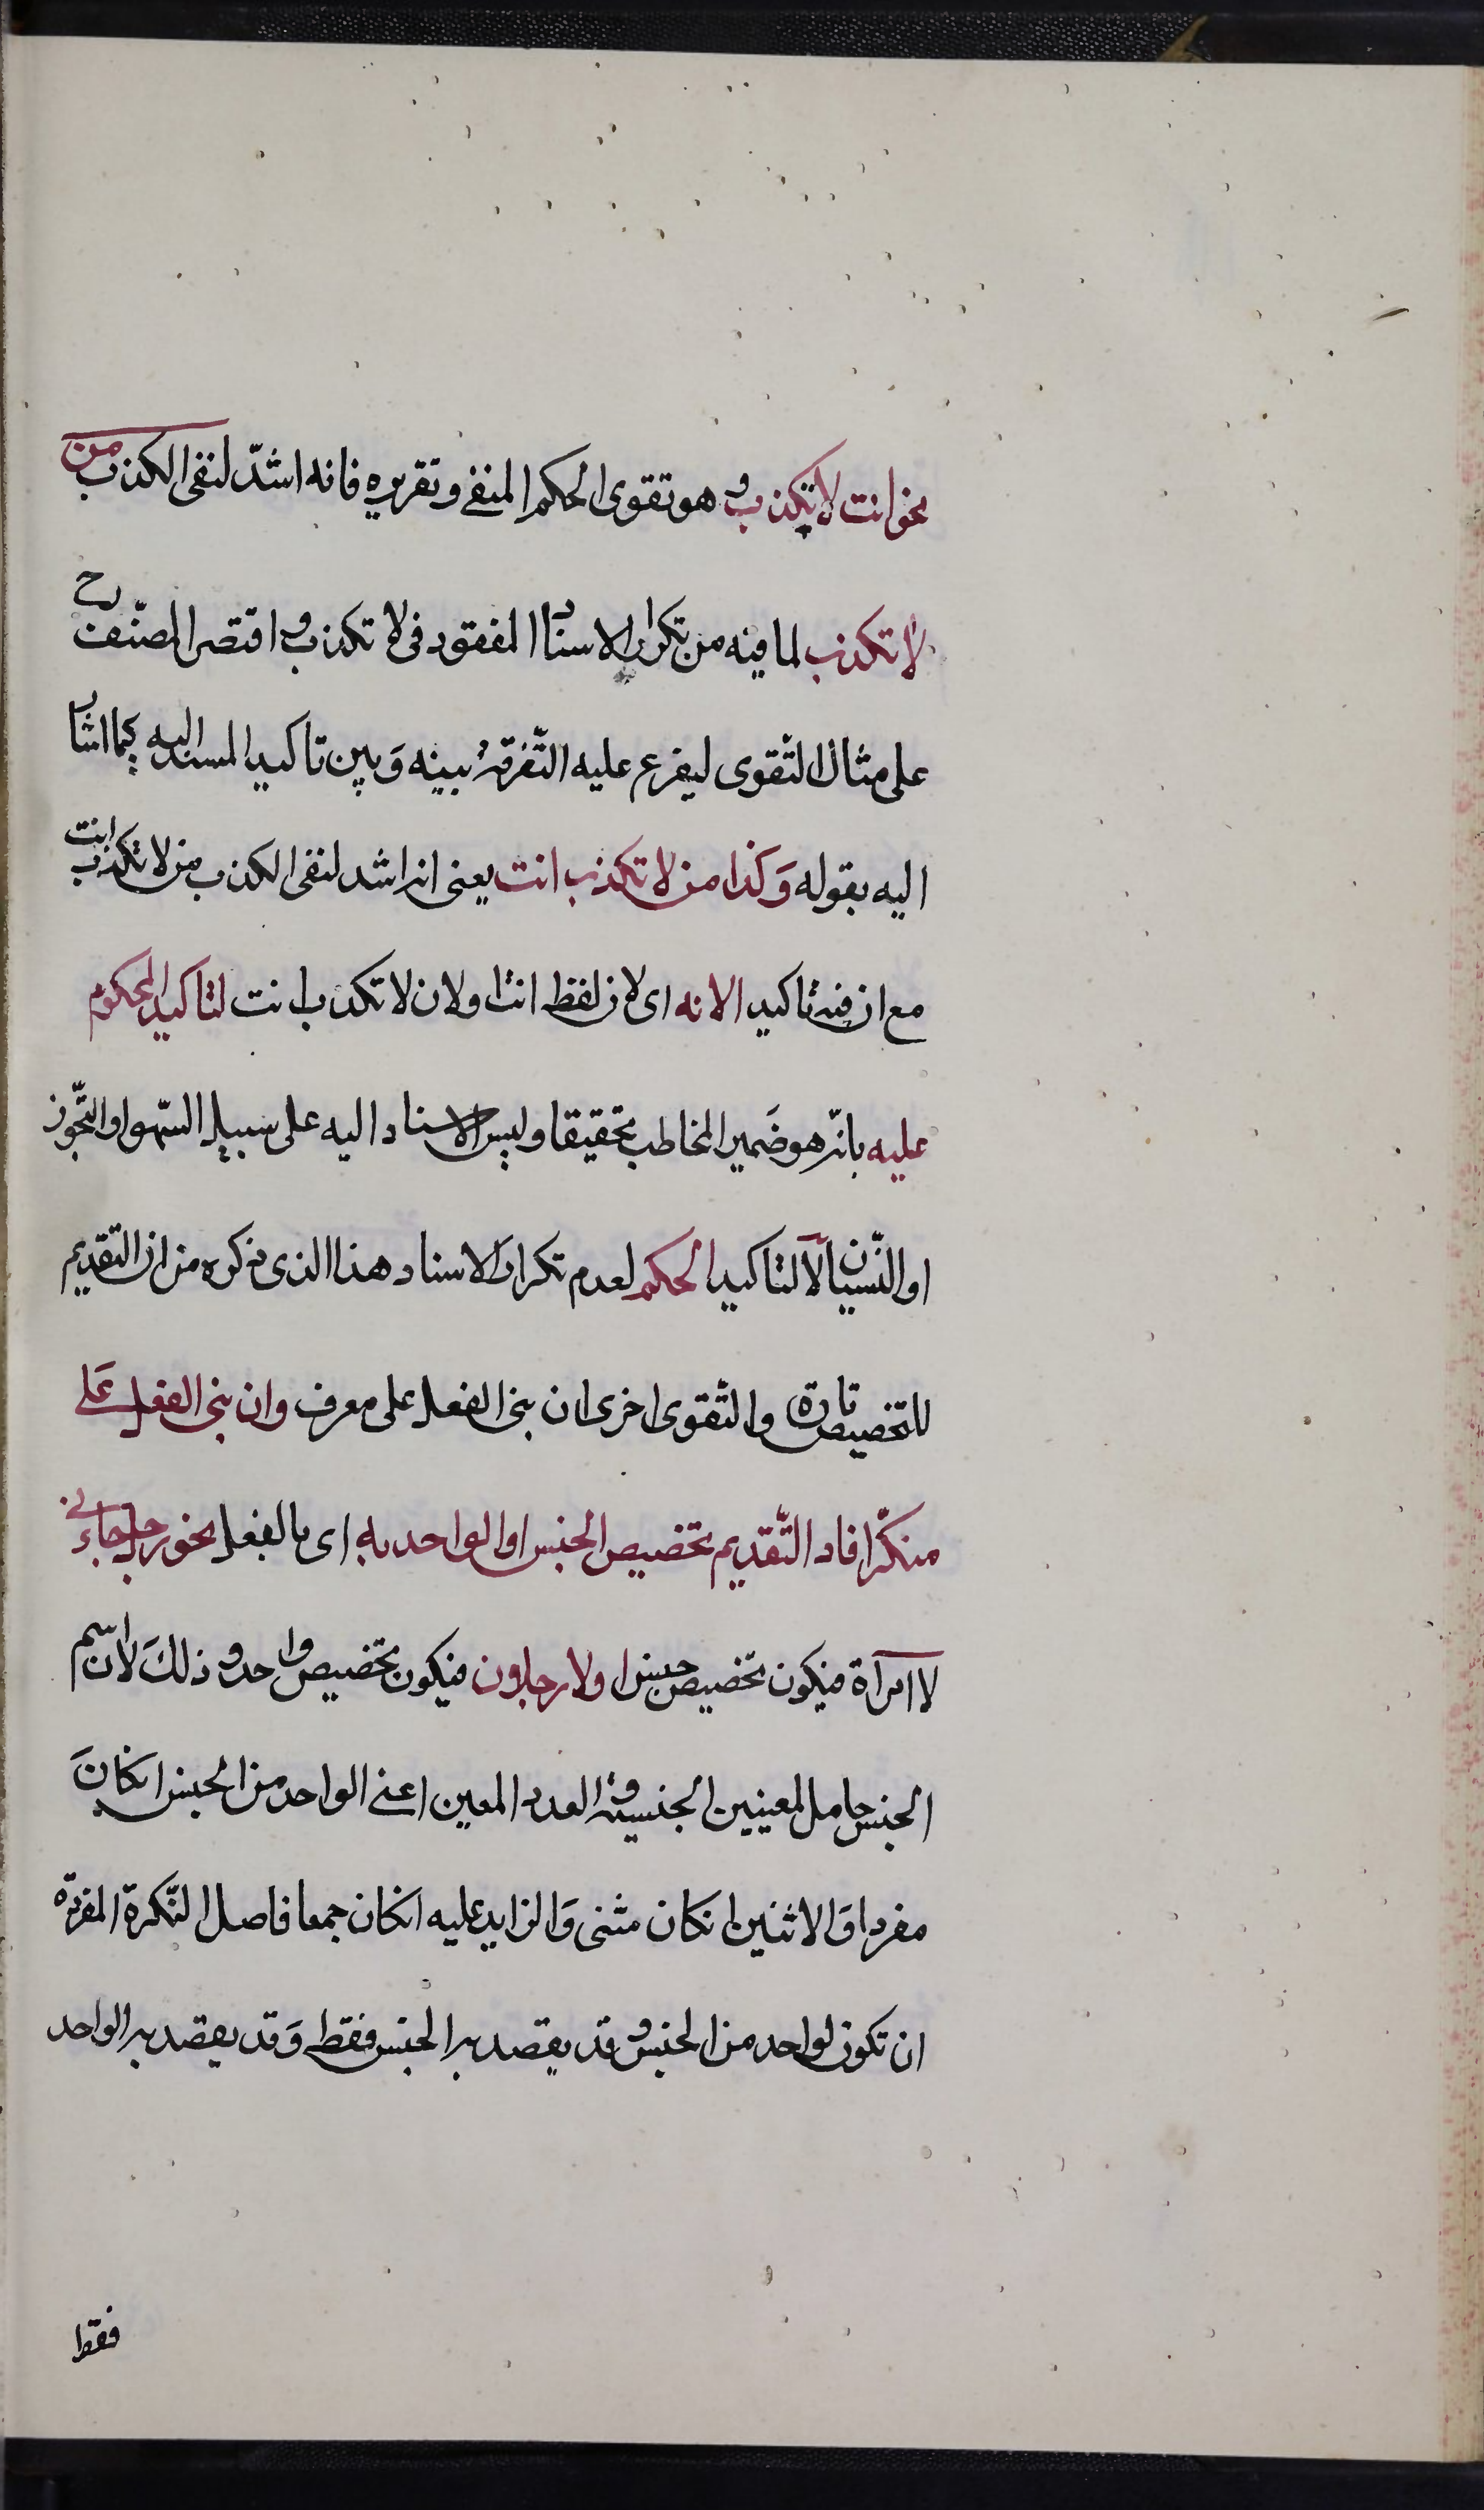 نحو انت لا تكذب و هو تقوى الحكم المنفي و تقريره فانه اشدّ لنفى الكذب من
لا تكذب لما فيه من تكرار الاسناد المفقود فى لا تكذب و اقتصر المصنّف رح
على مثال التّقوى ليفرع عليه التّفرقة بينه وَ بين تاكيد المسند اليه كما اشار
اليه بقوله وَ كذا من لا تكذب انت يعنى انه اشد لنفى الكذب من لا تكذب انت
مع ان فيه تاكيد الانه اى لان لفظ انت او لان لا تكذب انت لتاكيد المحكوم
عليه بانّه هو ضَمير المخاطب تحقيقا و ليس الاسناد اليه على سبيل السّهو او التّجوّز
او النّسيان لا لتاكيد الحكم لعدم تكرار الاسناد هذا الذى ذكره من ان التقديم
للتخصيص تارة و التّقوى اخرى ان بنى الفعل على معرف و ان بنى الفعل عَلى
منكّر افاد التّقديم تخصيص الجنس او الواحد به اى بالفعل نحو رجل جاءنى
لا امرآة فيكون تخصيص جنس او لا رجلان فيكون تخصيص واحد و ذلكَ لان اسم
الجنس حامل لمعنيين الجنسية و العدد المعين اعنى الواحد من الجنس انكانَ
مفردا وَ الاثنين انكان مثنى وَ الزايد عليه انكان جمعا فاصل النّكرة المفردة
ان تكون لواحد من الجنس و قد يقصد به الجنس فقط وَ قد يقصد به الواحد
فقط